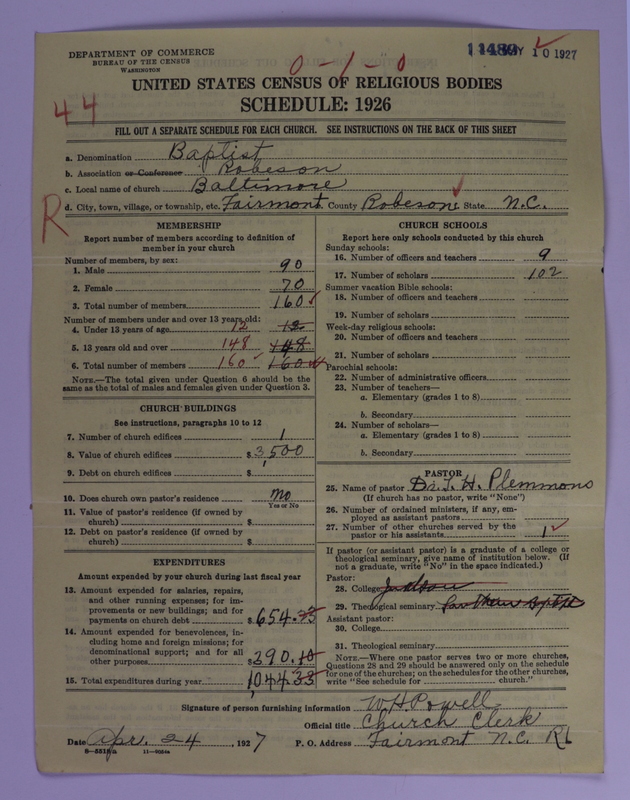 DEPARTMENT OF COMMERCE
BUREAU OF THE CENSUS
WASHINGTON
MAY 10 1927
0-1-0
UNITED STATES CENSUS OF RELIGIOUS BODIES
SCHEDULE: 1926
44
FILL OUT A SEPARATE SCHEDULE FOR EACH CHURCH. SEE INSTRUCTIONS ON THE BACK OF THIS SHEET
a. Denomination Baptist
b. Association or Conference Robeson
c. Local name of church Baltimore
d. City, town, village, or township, etc. Fairmont County Robeson State N.C.
R
MEMBERSHIP
Report number of members according to definition of
member in your church
Number of members, by sex:
1. Male 90
2. Female 70
3. Total number of members 160
Number of members under and over 13 years old:
4. Under 13 years of age 12 12
5. 13 years old and over 148 148
6. Total number of members 160 160
NOTE.—The total given under Question 6 should be the
same as the total of males and females given under Question 3.
CHURCH BUILDINGS
See instructions, paragraphs 10 to 12
7. Number of church edifices 1
8. Value of church edifices $3,500
9. Debt on church edifices $
10. Does church own pastor's residence no
Yes or No
11. Value of pastor's residence (if owned by
church) $
12. Debt on pastor's residence (if owned by
church) $
EXPENDITURES
Amount expended by your church during last fiscal year
13. Amount expended for salaries, repairs,
and other running expenses; for im-
provements or new buildings; and for
payments on church debt $654.23
14. Amount expended for benevolences, in-
cluding home and foreign missions; for
denominational support; and for all
other purposes $390.10
15. Total expenditures during year 1,044.33
CHURCH SCHOOLS
Report here only schools conducted by this church
Sunday schools:
16. Number of officers and teachers 9
17. Number of scholars 102
Summer vacation Bible schools:
18. Number of officers and teachers
19. Number of scholars
Week-day religious schools:
20. Number of officers and teachers
21. Number of scholars
Parochial schools:
22. Number of administrative officers
23. Number of teachers—
a. Elementary (grades 1 to 8)
b. Secondary
24. Number of scholars—
a. Elementary (grades 1 to 8)
b. Secondary
PASTOR
25. Name of pastor Dr. I. H. Plemmons
(If church has no pastor, write "None")
26. Number of ordained ministers, if any, em-
ployed as assistant pastors
27. Number of other churches served by the
pastor or his assistants 1
If pastor (or assistant pastor) is a graduate of a college or
theological seminary, give name of institution below. (If
not a graduate, write "No" in the space indicated.)
Pastor:
28. College Judson
29. Theological seminary
Assistant pastor:
30. College
31. Theological seminary
NOTE.—Where one pastor serves two or more churches,
Questions 28 and 29 should be answered only on the schedule
for one of the churches; on the schedules for the other churches,
write "See schedule for church."
Signature of person furnishing information W.H. Powell
Official title Church Clerk
Date Apr. 24, 1927 P. O. Address Fairmont N.C. R1